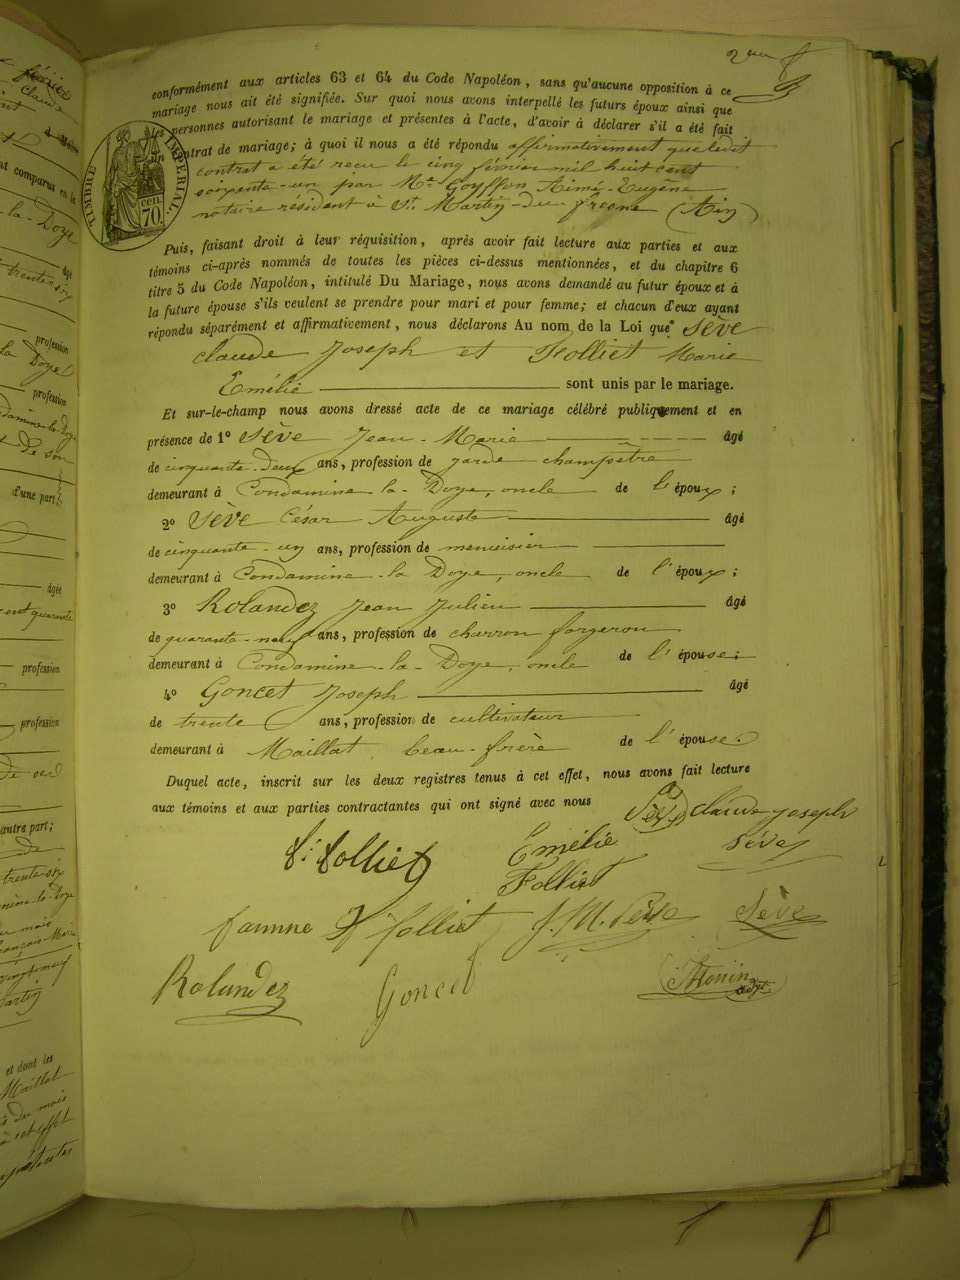 2me f
conformément aux articles 63 et 64 du Code Napoléon, sans qu'aucune opposition à ce
mariage nous ait été signifiée. Sur quoi nous avons interpellé les futurs époux ainsi que
les personnes autorisant le mariage et présentes à l'acte, d'avoir à déclarer s'il a été fait
contrat de mariage; à quoi il nous a été répondu affirmativement que ledit
contrat a été reçu le cinq février mil huit cent
soixante-un par Me Goyffon Aimé-Eugène
notaire résident à St Martin-du-fresne (Ain)
TIMBRE IMPÉRIAL
cen. 70.
Puis, faisant droit à leur réquisition, après avoir fait lecture aux parties et aux
témoins ci-après nommés de toutes les pièces ci-dessus mentionnées, et du chapitre 6
titre 5 du Code Napoléon, intitulé Du Mariage, nous avons demandé au futur époux et à
la future épouse s'ils veulent se prendre pour mari et pour femme; et chacun d'eux ayant
répondu séparément et affirmativement, nous déclarons Au nom de la Loi que Sève
claude Joseph et Folliet Marie
Emélie sont unis par le mariage.
Et sur-le-champ nous avons dressé acte de ce mariage célébré publiquement et en
présence de 1° Sève Jean-Marie âgé
de cinquante-deux ans, profession de garde champêtre
demeurant à Condamine la-Doye, oncle de l'époux;
2° Sève César Auguste âgé
de cinquante-un ans, profession de menuisier
demeurant à Condamine-la Doye, oncle de l'époux;
3° Rolandez Jean Julien âgé
de quarante-neuf ans, profession de charron forgeron
demeurant à Condamine-la-Doye, oncle de l'épouse;
4° Goncet Joseph âgé
de trente ans, profession de cultivateur
demeurant à Maillat beau-frère de l'épouse.
Duquel acte, inscrit sur les deux registres tenus à cet effet, nous avons fait lecture
aux témoins et aux parties contractantes qui ont signé avec nous
Claude-Joseph
Sève
folliet
Emélie
Folliet
famme folliet
J. M. Sève
Sève
Rolandez
Goncet
Monin
adjt